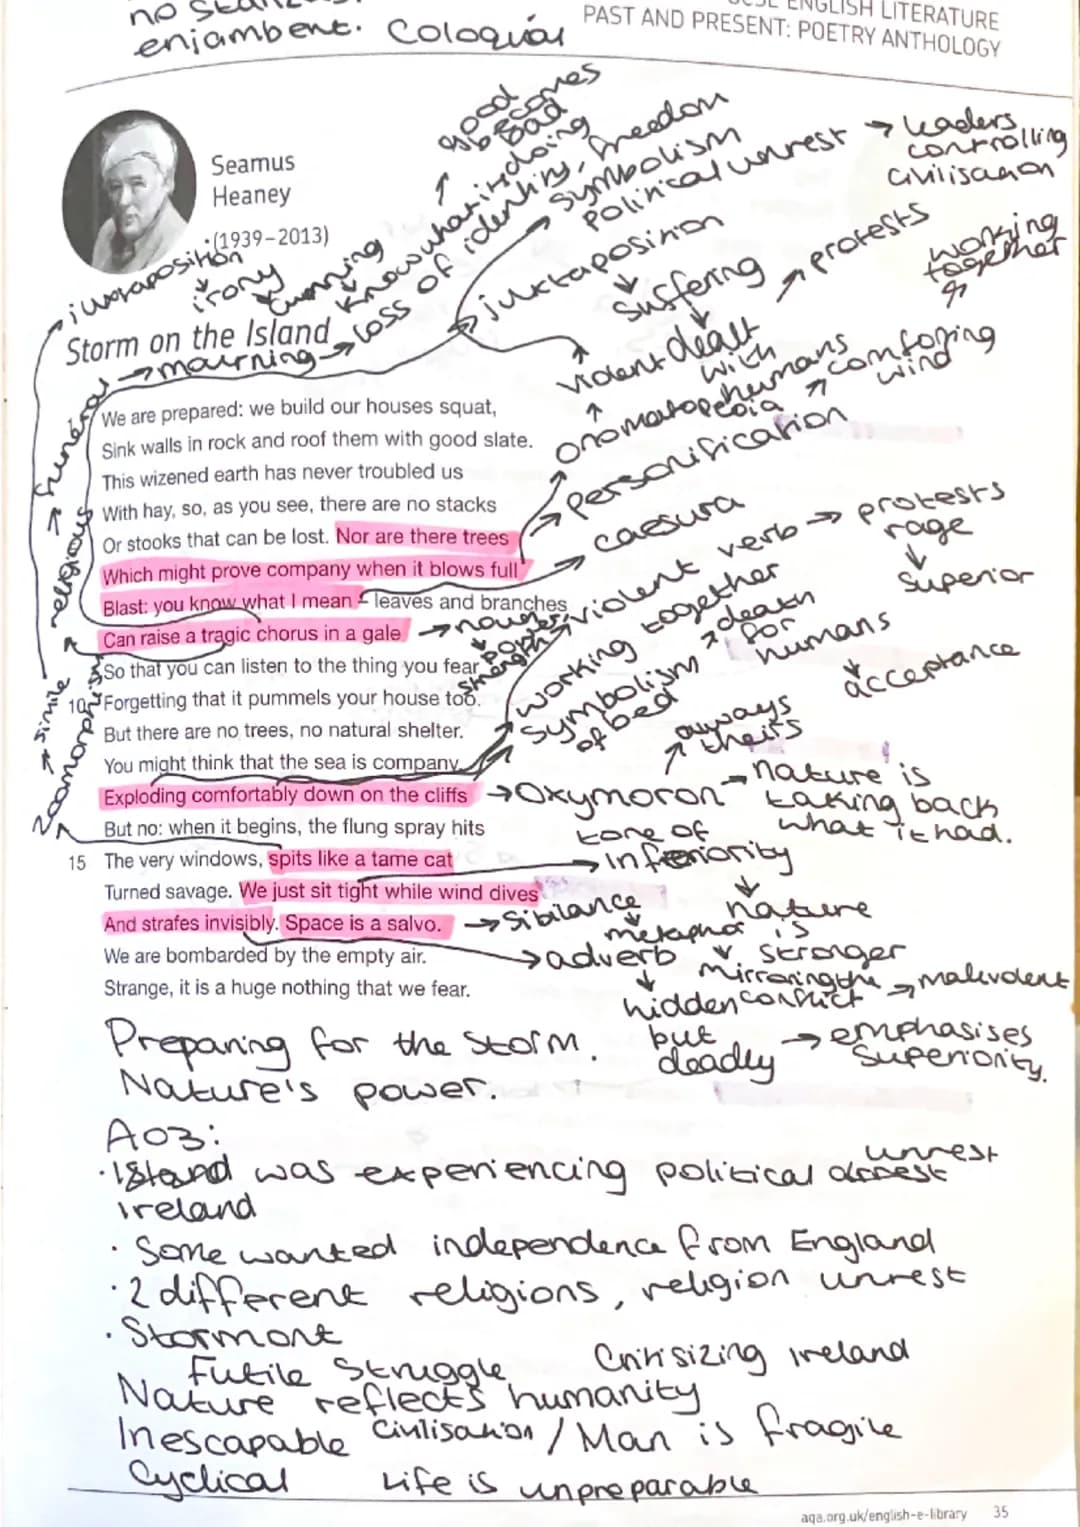 enjambent. Coloquial
ENGLISH LITERATURE
PAST AND PRESENT: POETRY ANTHOLOGY
Seamus
Heaney
(1939–2013)
juxtaposition
irony
good
becomes
bad
Know what it is doing
loss of identity, freedom
symbolism
political unrest → leaders
controlling
civilisation
juxtaposition
suffering
protests
working
together
violent
dealt
with
humans
onomatopoeia
comforing
wind
personification
caesura
violent verb → protests
rage
superior
noun
power
strength
working together
symbolism
of bed
death
for
humans
acceptance
always
theirs
Storm on the Island
mourning
funeral
religious
simile
zoomorphism
We are prepared: we build our houses squat,
Sink walls in rock and roof them with good slate.
This wizened earth has never troubled us
With hay, so, as you see, there are no stacks
Or stooks that can be lost. Nor are there trees
Which might prove company when it blows full
Blast: you know what I mean – leaves and branches
Can raise a tragic chorus in a gale
So that you can listen to the thing you fear
10 Forgetting that it pummels your house too.
But there are no trees, no natural shelter.
You might think that the sea is company,
Exploding comfortably down on the cliffs
But no: when it begins, the flung spray hits
15 The very windows, spits like a tame cat
Turned savage. We just sit tight while wind dives
And strafes invisibly. Space is a salvo.
We are bombarded by the empty air.
Strange, it is a huge nothing that we fear.
→ Oxymoron
nature is
taking back
what it had.
tone of
inferiority
nature
is
stronger
→ Sibilance
metaphor
→ adverb
mirroring the
conflict
malevolent
hidden
but
deadly
→ emphasises
superiority.
Preparing for the storm.
Nature's power.
AO3:
· Island was experiencing political unrest
ireland
· Some wanted independence from England
· 2 different religions, religion unrest
· Stormont
Futile Struggle
Critisizing ireland
Nature reflects humanity
Inescapable Civilisation / Man is fragile
Cyclical Life is unpreparable
aqa.org.uk/english-e-library 35